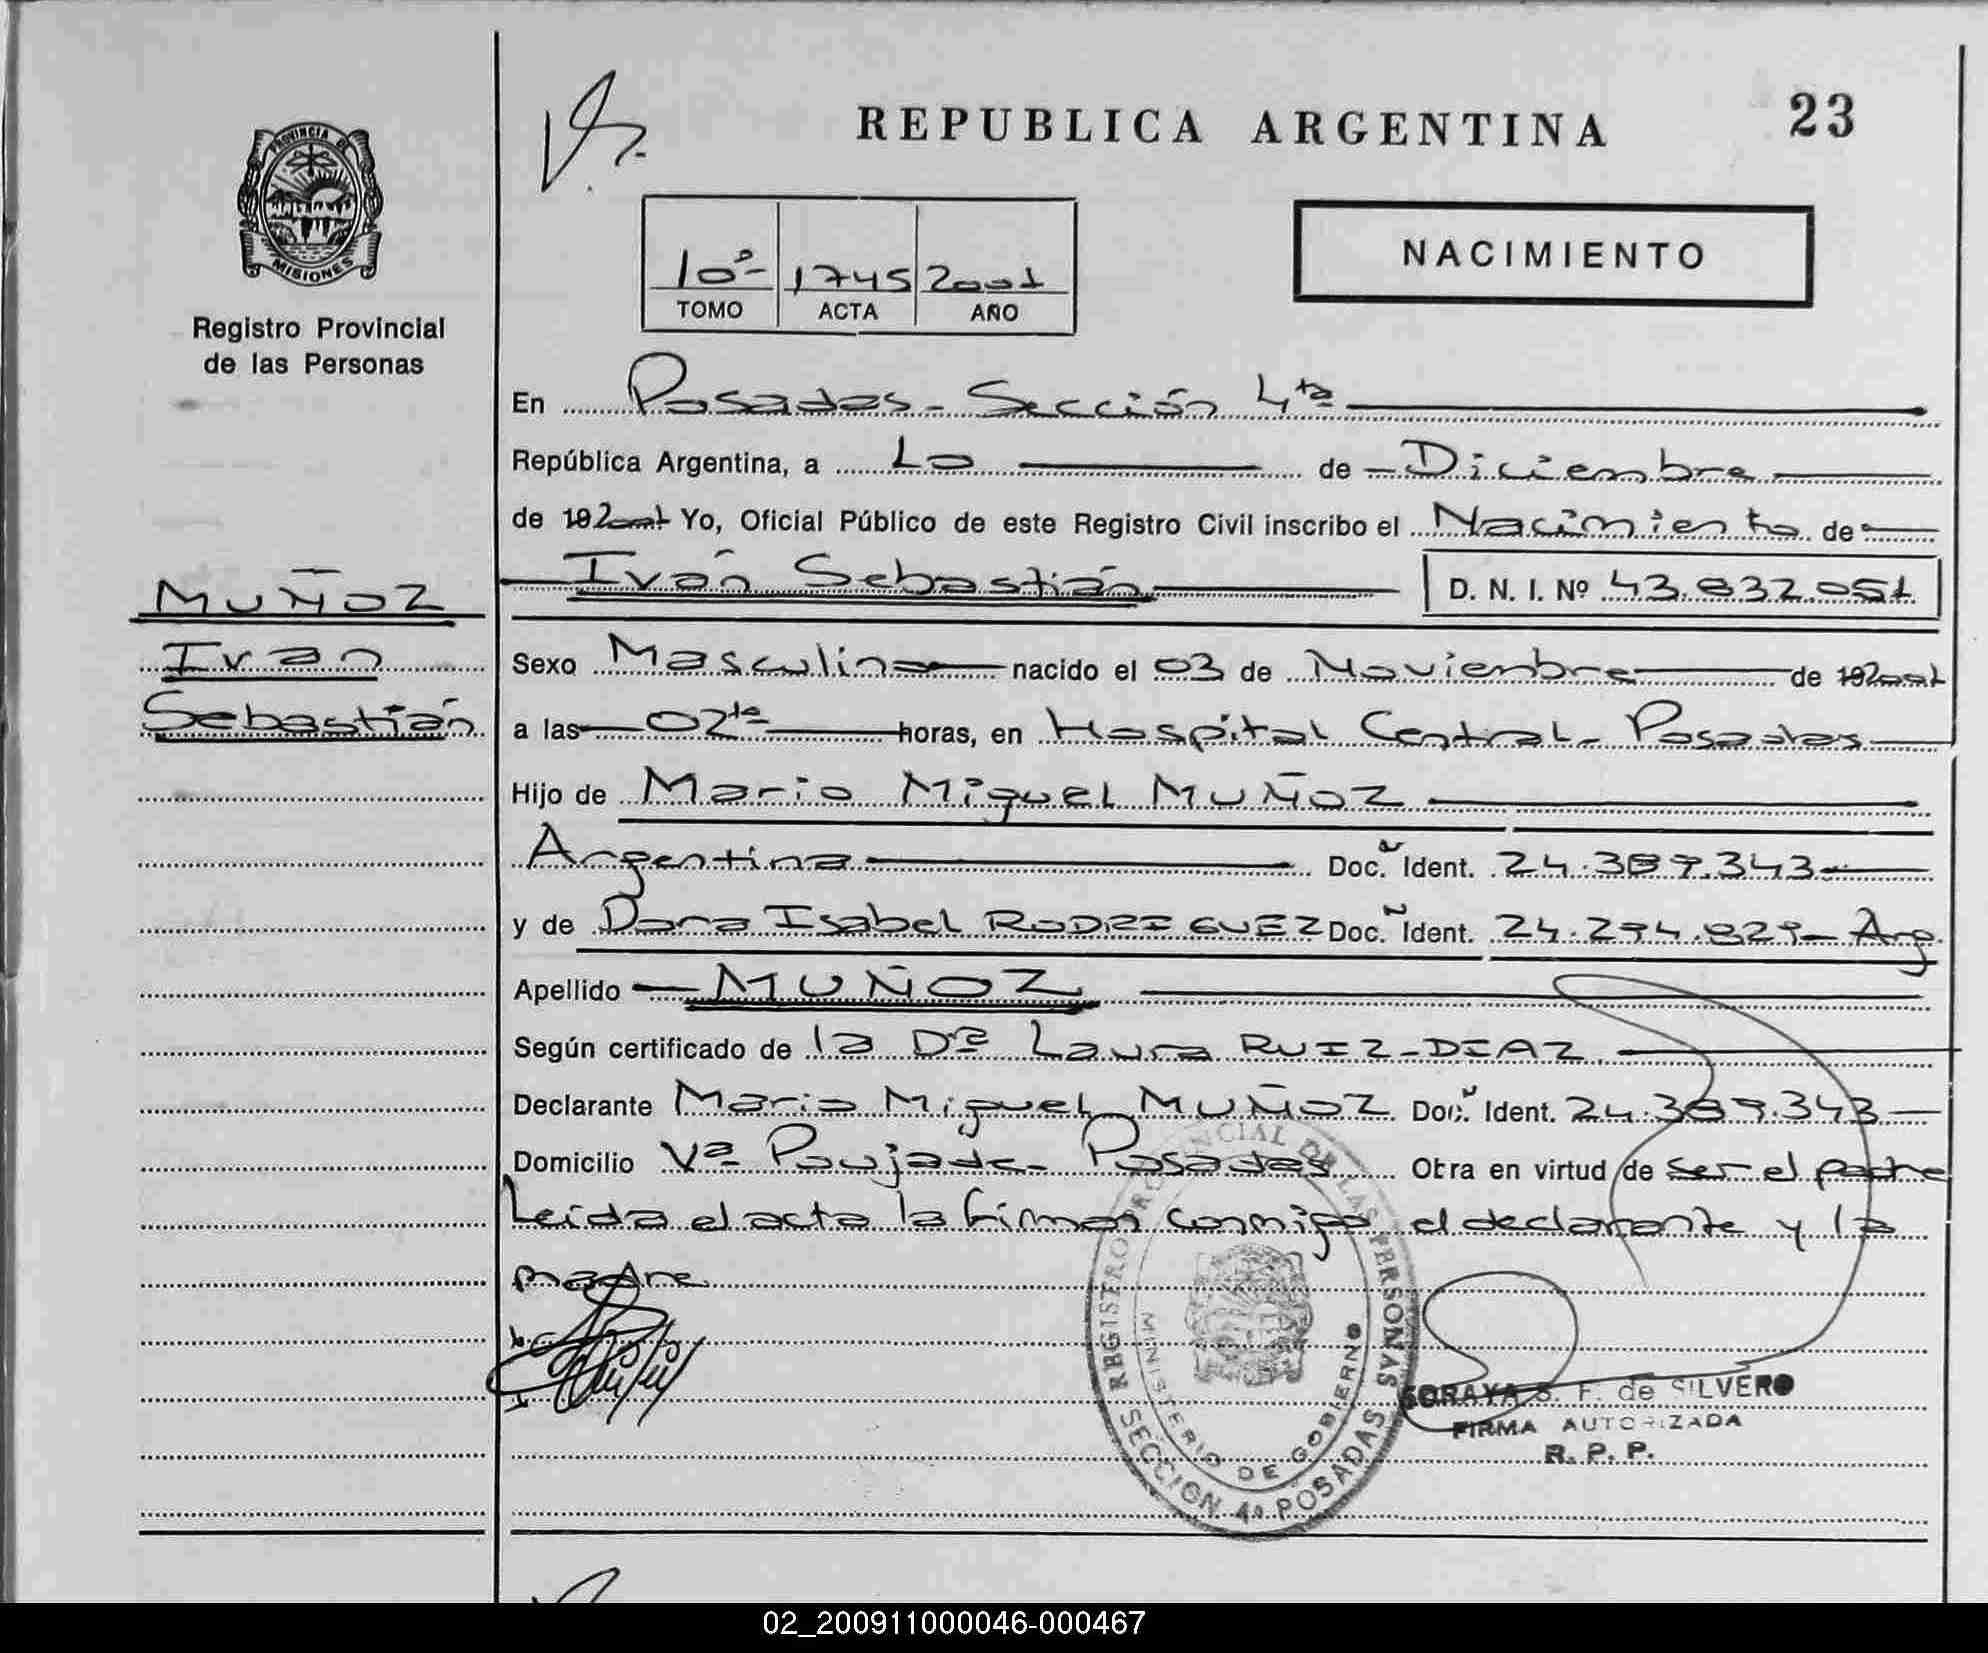 REPUBLICA ARGENTINA
23
PROVINCIA DE
MISIONES
Registro Provincial
de las Personas
10º 1745 2001
TOMO ACTA AÑO
NACIMIENTO
En Posadas - Sección 4ta
República Argentina, a 10 de Diciembre
de 192001 Yo, Oficial Público de este Registro Civil inscribo el Nacimiento de
Iván Sebastián D. N. I. Nº 43.832.051
MUÑOZ
Iván
Sebastián
Sexo Masculino nacido el 03 de Noviembre de 192001
a las 02 horas, en Hospital Central - Posadas
Hijo de Mario Miguel MUÑOZ
Argentina Doc. Ident. 24.389.343
y de Dora Isabel RODRIGUEZ Doc. Ident. 24.294.829 - Arg
Apellido MUÑOZ
Según certificado de la Dra Laura RUIZ-DIAZ
Declarante Mario Miguel MUÑOZ Doc. Ident. 24.389.343
Domicilio Vª Poujade - Posadas Obra en virtud de ser el padre
Leída el acta la firman conmigo el declarante y la
madre
REGISTRO PROVINCIAL DE LAS PERSONAS
MINISTERIO DE GOBIERNO
SECCION 4ª POSADAS
SORAYA S. F. de SILVERO
FIRMA AUTORIZADA
R. P. P.
02_200911000046-000467